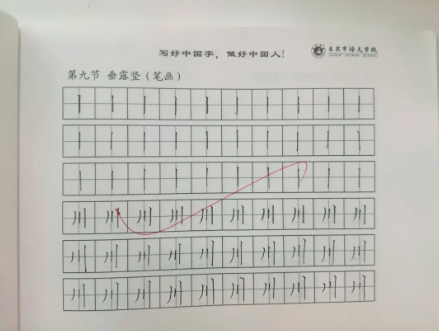 写好中国字，做好中国人！
第九节 垂露竖（笔画）
丨 丨 丨 丨 丨 丨 丨 丨 丨 丨
丨 丨 丨 丨 丨 丨 丨 丨 丨 丨
丨 丨 丨 丨 丨 丨 丨 丨 丨 丨
川 川 川 川 川 川 川 川 川 川
川 川 川 川 川 川 川 川 川 川
川 川 川 川 川 川 川 川 川 川